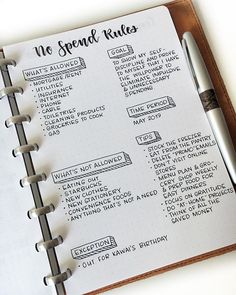 No Spend Rules
WHAT'S ALLOWED
• MORTGAGE/RENT
• UTILITIES
• INSURANCE
• INTERNET
• PHONE
• CABLE
• TOILETRIES
• CLEANING PRODUCTS
• GROCERIES TO COOK
• GAS
WHAT'S NOT ALLOWED
• EATING OUT
• STARBUCKS
• NEW STATIONERY
• CONVENIENCE FOODS
• ANYTHING THAT'S NOT A NEED
EXCEPTION
• OUT FOR KAWAI'S BIRTHDAY
GOAL
TO SHOW MY SELF-
DISCIPLINE AND PROVE
TO MYSELF THAT I HAVE
THE WILLPOWER TO
ELIMINATE IMPULSIVE
& UNNECESSARY
SPENDING
TIME PERIOD
MAY 2019
TIPS
• STOCK THE FREEZER
• EAT FROM THE PANTRY
• DELETE "PROMO" EMAILS
• DON'T VISIT ONLINE
STORES
• MENU PLAN & GRO-
CERY SHOP WEEKLY
• PREP FOOD FOR
BUSY DINNERS
• FOCUS ON GRATITUDE
• DO "AT-HOME" DATES
• THINK OF ALL THE
SAVED MONEY